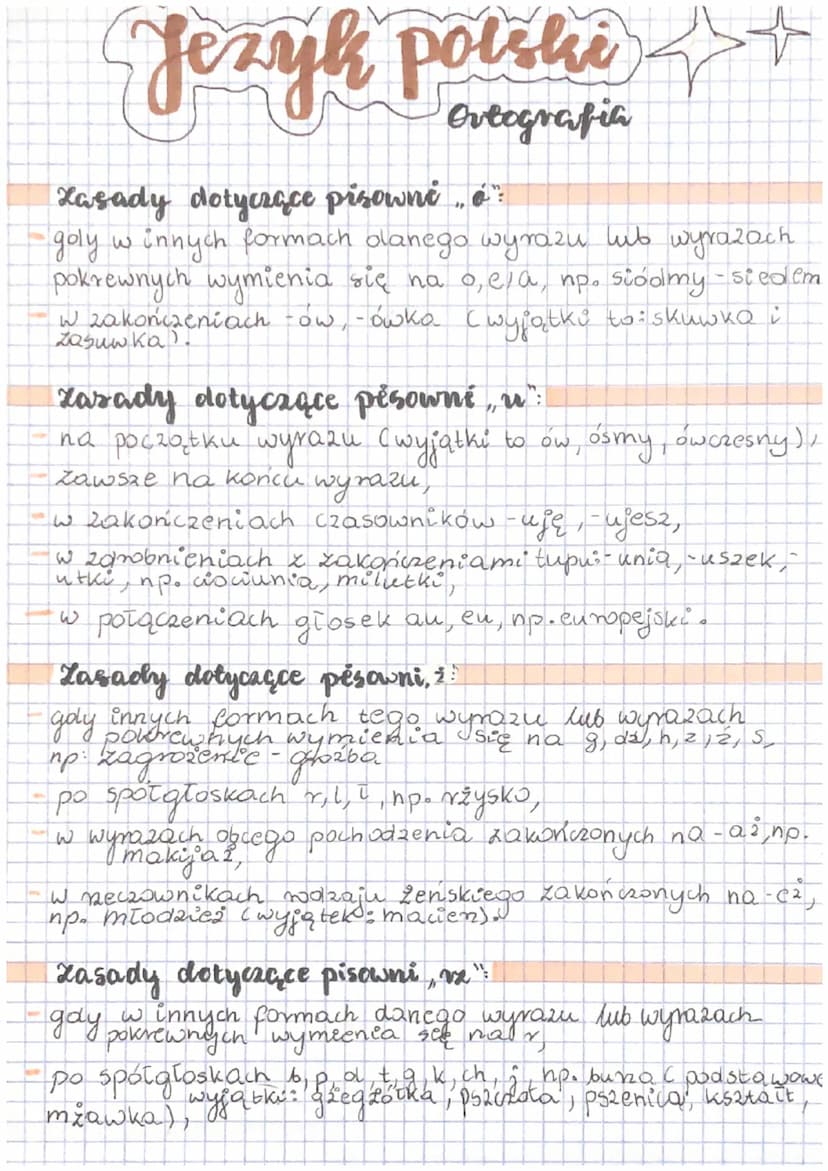 Język polski
Ortografia
Zasady dotyczące pisowni „ó":
- gdy w innych formach danego wyrazu lub wyrazach
pokrewnych wymienia się na o,e,a, np. siódmy - siedem
- w zakończeniach -ów, -ówka (wyjątki to: skuwka i
zasuwka).
Zasady dotyczące pisowni „u":
- na początku wyrazu (wyjątki to ów, ósmy, ówczesny),
- zawsze na końcu wyrazu,
- w zakończeniach czasowników -uję, -ujesz,
- w zdrobnieniach z zakończeniami tupu: -unia, -uszek, -
utki, np. ciociunia, milutki,
- w połączeniach głosek au, eu, np. europejski.
Zasady dotyczące pisowni „ż"
- gdy innych formach tego wyrazu lub wyrazach
pokrewnych wymienia się na g, dz, h, z, ź, s,
np: zagrożenie - groźba
- po spółgłoskach r, l, ł, np. rżysko,
- w wyrazach obcego pochodzenia zakończonych na -aż, np.
makijaż,
- w rzeczownikach rodzaju żeńskiego zakończonych na -eż,
np. młodzież (wyjątek: macierz).
Zasady dotyczące pisowni „rz":
- gdy w innych formach danego wyrazu lub wyrazach
pokrewnych wymienia się na r,
- po spółgłoskach b, p, d, t, g, k, ch, j, np. burza (podstawowe
wyjątki: gżegżółka, pszczoła, pszenica, kształt,
mżawka),